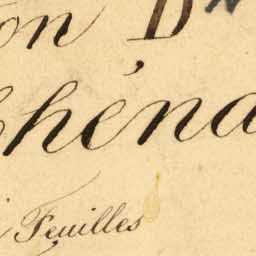 on D
héna
Feuilles